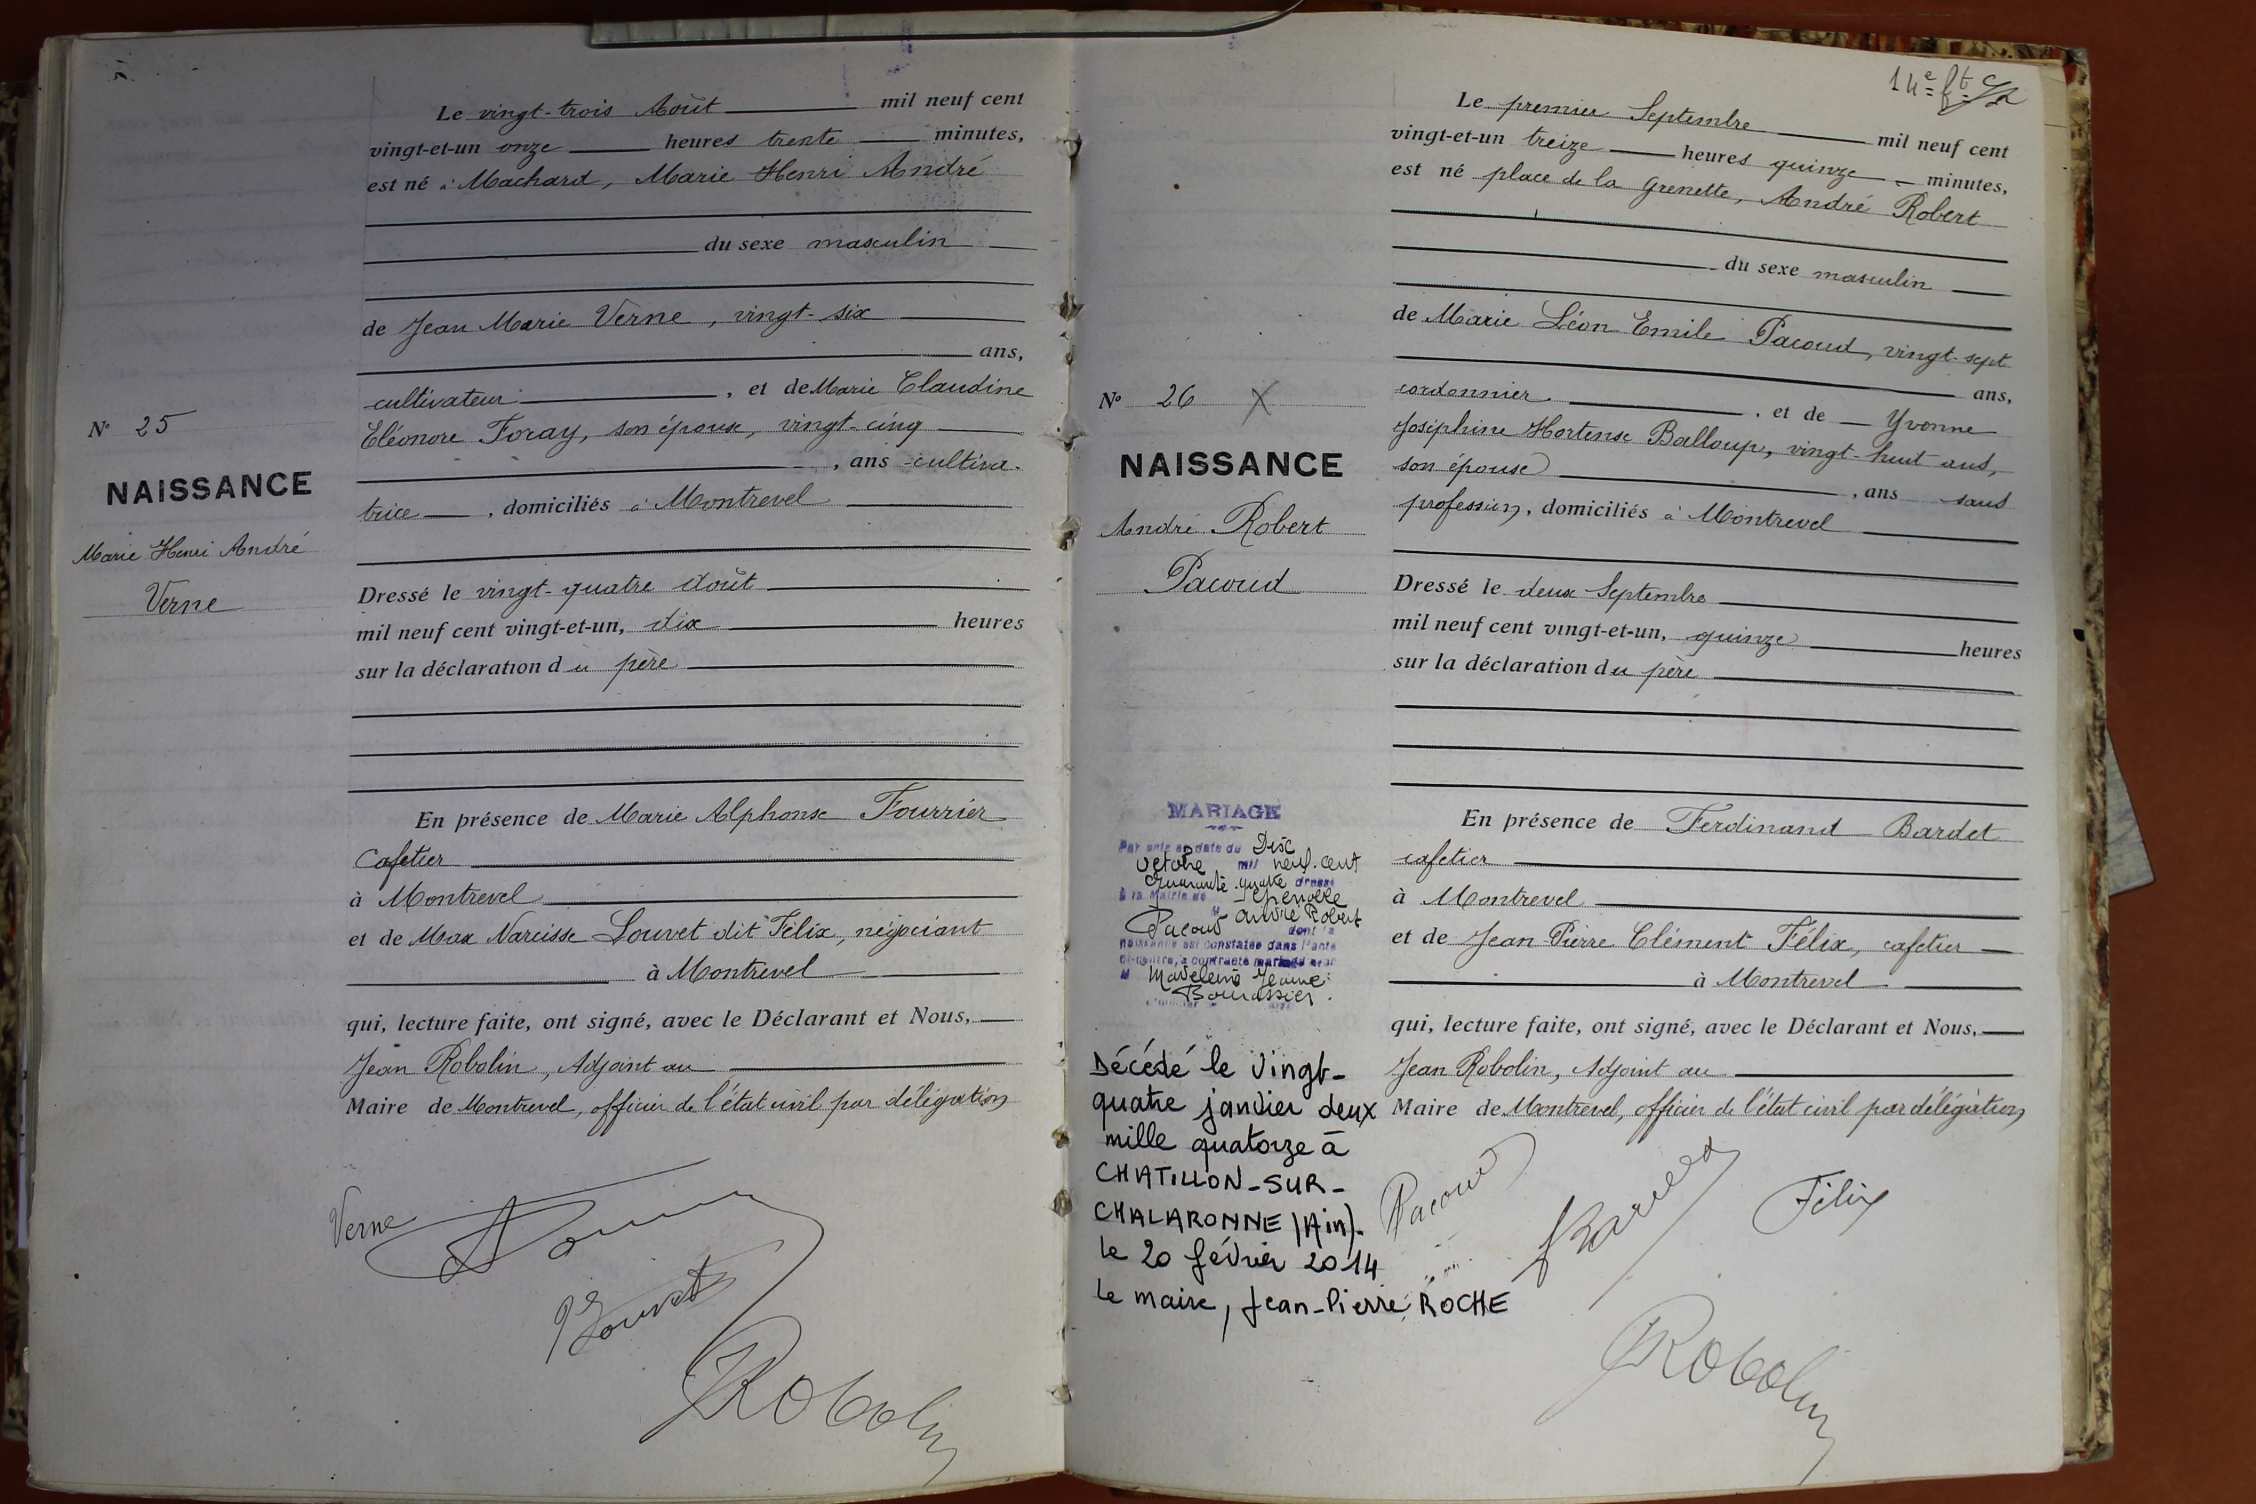 Le vingt-trois Août mil neuf cent
vingt-et-un onze heures trente minutes,
est né à Machard, Marie Henri André
du sexe masculin
de Jean Marie Verne, vingt-six
ans,
cultivateur, et de Marie Claudine
Eléonore Foray, son épouse, vingt-cinq
, ans cultiva-
trice, domiciliés à Montrevel
N° 25
NAISSANCE
Marie Henri André
Verne
Dressé le vingt-quatre Août
mil neuf cent vingt-et-un, dix heures
sur la déclaration du père
En présence de Marie Alphonse Fourrier
Cafetier
à Montrevel
et de Max Narcisse Louvet dit Félix, négociant
à Montrevel
qui, lecture faite, ont signé, avec le Déclarant et Nous,
Jean Robolin, Adjoint au
Maire de Montrevel, officier de l'état civil par délégation
Verne
Louvet
JRobolin
14e ft
Le premier Septembre mil neuf cent
vingt-et-un treize heures quinze minutes,
est né place de la Grenette, André Robert
du sexe masculin
de Marie Léon Emile Pacoud, vingt-sept
ans,
cordonnier, et de Yvonne
Joséphine Hortense Balloup, vingt-huit ans,
son épouse, ans sans
profession, domiciliés à Montrevel
N° 26 X
NAISSANCE
André Robert
Pacoud
Dressé le deux Septembre
mil neuf cent vingt-et-un, quinze heures
sur la déclaration du père
En présence de Ferdinand Bardet
cafetier
à Montrevel
et de Jean Pierre Clément Félix, cafetier
à Montrevel
qui, lecture faite, ont signé, avec le Déclarant et Nous,
Jean Robolin, Adjoint au
Maire de Montrevel, officier de l'état civil par délégation
MARIAGE
Par acte en date du Dix
octobre mil neuf cent
quarante quatre dressé
à la Mairie de
M André Robert
Pacoud dont la
naissance est constatée dans l'acte
ci-contre, a contracté mariage avec
M Madeleine Jeanne
Décédé le vingt-
quatre janvier deux
mille quatorze à
CHATILLON-SUR-
CHALARONNE (Ain).
le 20 février 2014
le maire, Jean-Pierre ROCHE
Pacoud
Félix
JRobolin